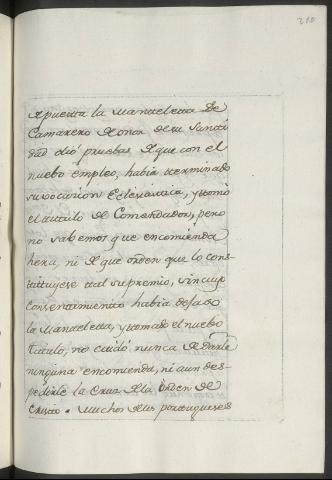 210
depuesta la Manteleta de
Camarero de onor de su Santi
dad dió pruebas de que con el
nuebo empleo, habia terminado
su vocacion Eclesiastica, y tomó
el titulo de Comendador, pero
no sabemos que encomienda
hera, ni de que orden que lo cons
tituyese tal supremio, sin cuyo
consentimiento habia dejado
la Manteletta, y tomado el nuebo
titulo, no cuidó nunca de darle
ninguna encomienda, ni aun des-
pedirle la Cruz de la orden de
Cristo. Muchos de los portugueses